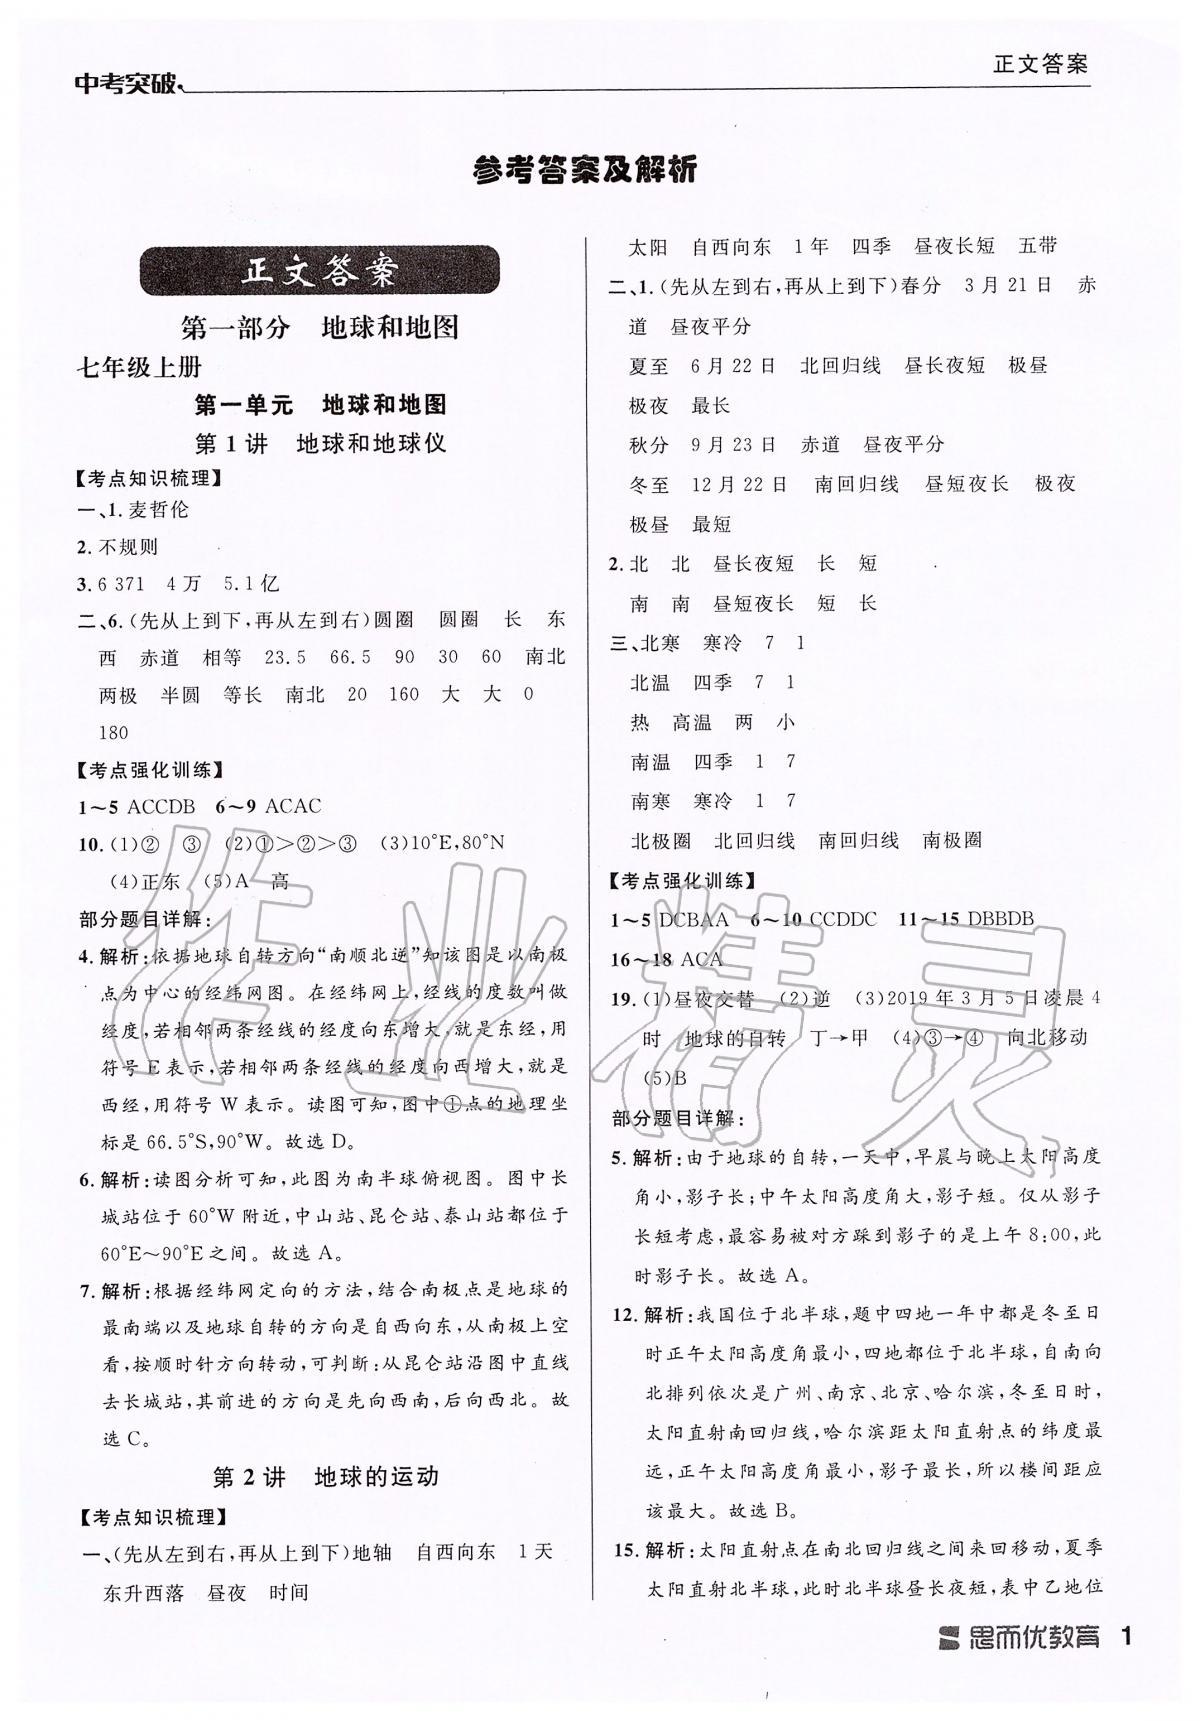 中考突破
正文答案
参考答案及解析
正文答案
第一部分　地球和地图
七年级上册
第一单元　地球和地图
第 1 讲　地球和地球仪
【考点知识梳理】
一、1. 麦哲伦
2. 不规则
3. 6 371　4 万　5.1 亿
二、6. (先从上到下,再从左到右)圆圈　圆圈　长　东
西　赤道　相等　23.5　66.5　90　30　60　南北
两极　半圆　等长　南北　20　160　大　大　0
180
【考点强化训练】
1～5 ACCDB　6～9 ACAC
10. (1)②　③　(2)①>②>③　(3)10°E,80°N
(4)正东　(5)A　高
部分题目详解:
4. 解析:依据地球自转方向“南顺北逆”知该图是以南极
点为中心的经纬网图。在经纬网上,经线的度数叫做
经度,若相邻两条经线的经度向东增大,就是东经,用
符号 E 表示,若相邻两条经线的经度向西增大,就是
西经,用符号 W 表示。读图可知,图中①点的地理坐
标是 66.5°S,90°W。故选 D。
6. 解析:读图分析可知,此图为南半球俯视图。图中长
城站位于 60°W 附近,中山站、昆仑站、泰山站都位于
60°E～90°E 之间。故选 A。
7. 解析:根据经纬网定向的方法,结合南极点是地球的
最南端以及地球自转的方向是自西向东,从南极上空
看,按顺时针方向转动,可判断:从昆仑站沿图中直线
去长城站,其前进的方向是先向西南,后向西北。故
选 C。
第 2 讲　地球的运动
【考点知识梳理】
一、(先从左到右,再从上到下)地轴　自西向东　1 天
东升西落　昼夜　时间
太阳　自西向东　1 年　四季　昼夜长短　五带
二、1. (先从左到右,再从上到下)春分　3 月 21 日　赤
道　昼夜平分
夏至　6 月 22 日　北回归线　昼长夜短　极昼
极夜　最长
秋分　9 月 23 日　赤道　昼夜平分
冬至　12 月 22 日　南回归线　昼短夜长　极夜
极昼　最短
2. 北　北　昼长夜短　长　短
南　南　昼短夜长　短　长
三、北寒　寒冷　7　1
北温　四季　7　1
热　高温　两　小
南温　四季　1　7
南寒　寒冷　1　7
北极圈　北回归线　南回归线　南极圈
【考点强化训练】
1～5 DCBAA　6～10 CCDDC　11～15 DBBDB
16～18 ACA
19. (1)昼夜交替　(2)逆　(3)2019 年 3 月 5 日凌晨 4
时　地球的自转　丁→甲　(4)③→④　向北移动
(5)B
部分题目详解:
5. 解析:由于地球的自转,一天中,早晨与晚上太阳高度
角小,影子长;中午太阳高度角大,影子短。仅从影子
长短考虑,最容易被对方踩到影子的是上午 8:00,此
时影子长。故选 A。
12. 解析:我国位于北半球,题中四地一年中都是冬至日
时正午太阳高度角最小,四地都位于北半球,自南向
北排列依次是广州、南京、北京、哈尔滨,冬至日时,
太阳直射南回归线,哈尔滨距太阳直射点的纬度最
远,正午太阳高度角最小,影子最长,所以楼间距应
该最大。故选 B。
15. 解析:太阳直射点在南北回归线之间来回移动,夏季
太阳直射北半球,此时北半球昼长夜短,表中乙地位
思而优教育　1
作业精灵